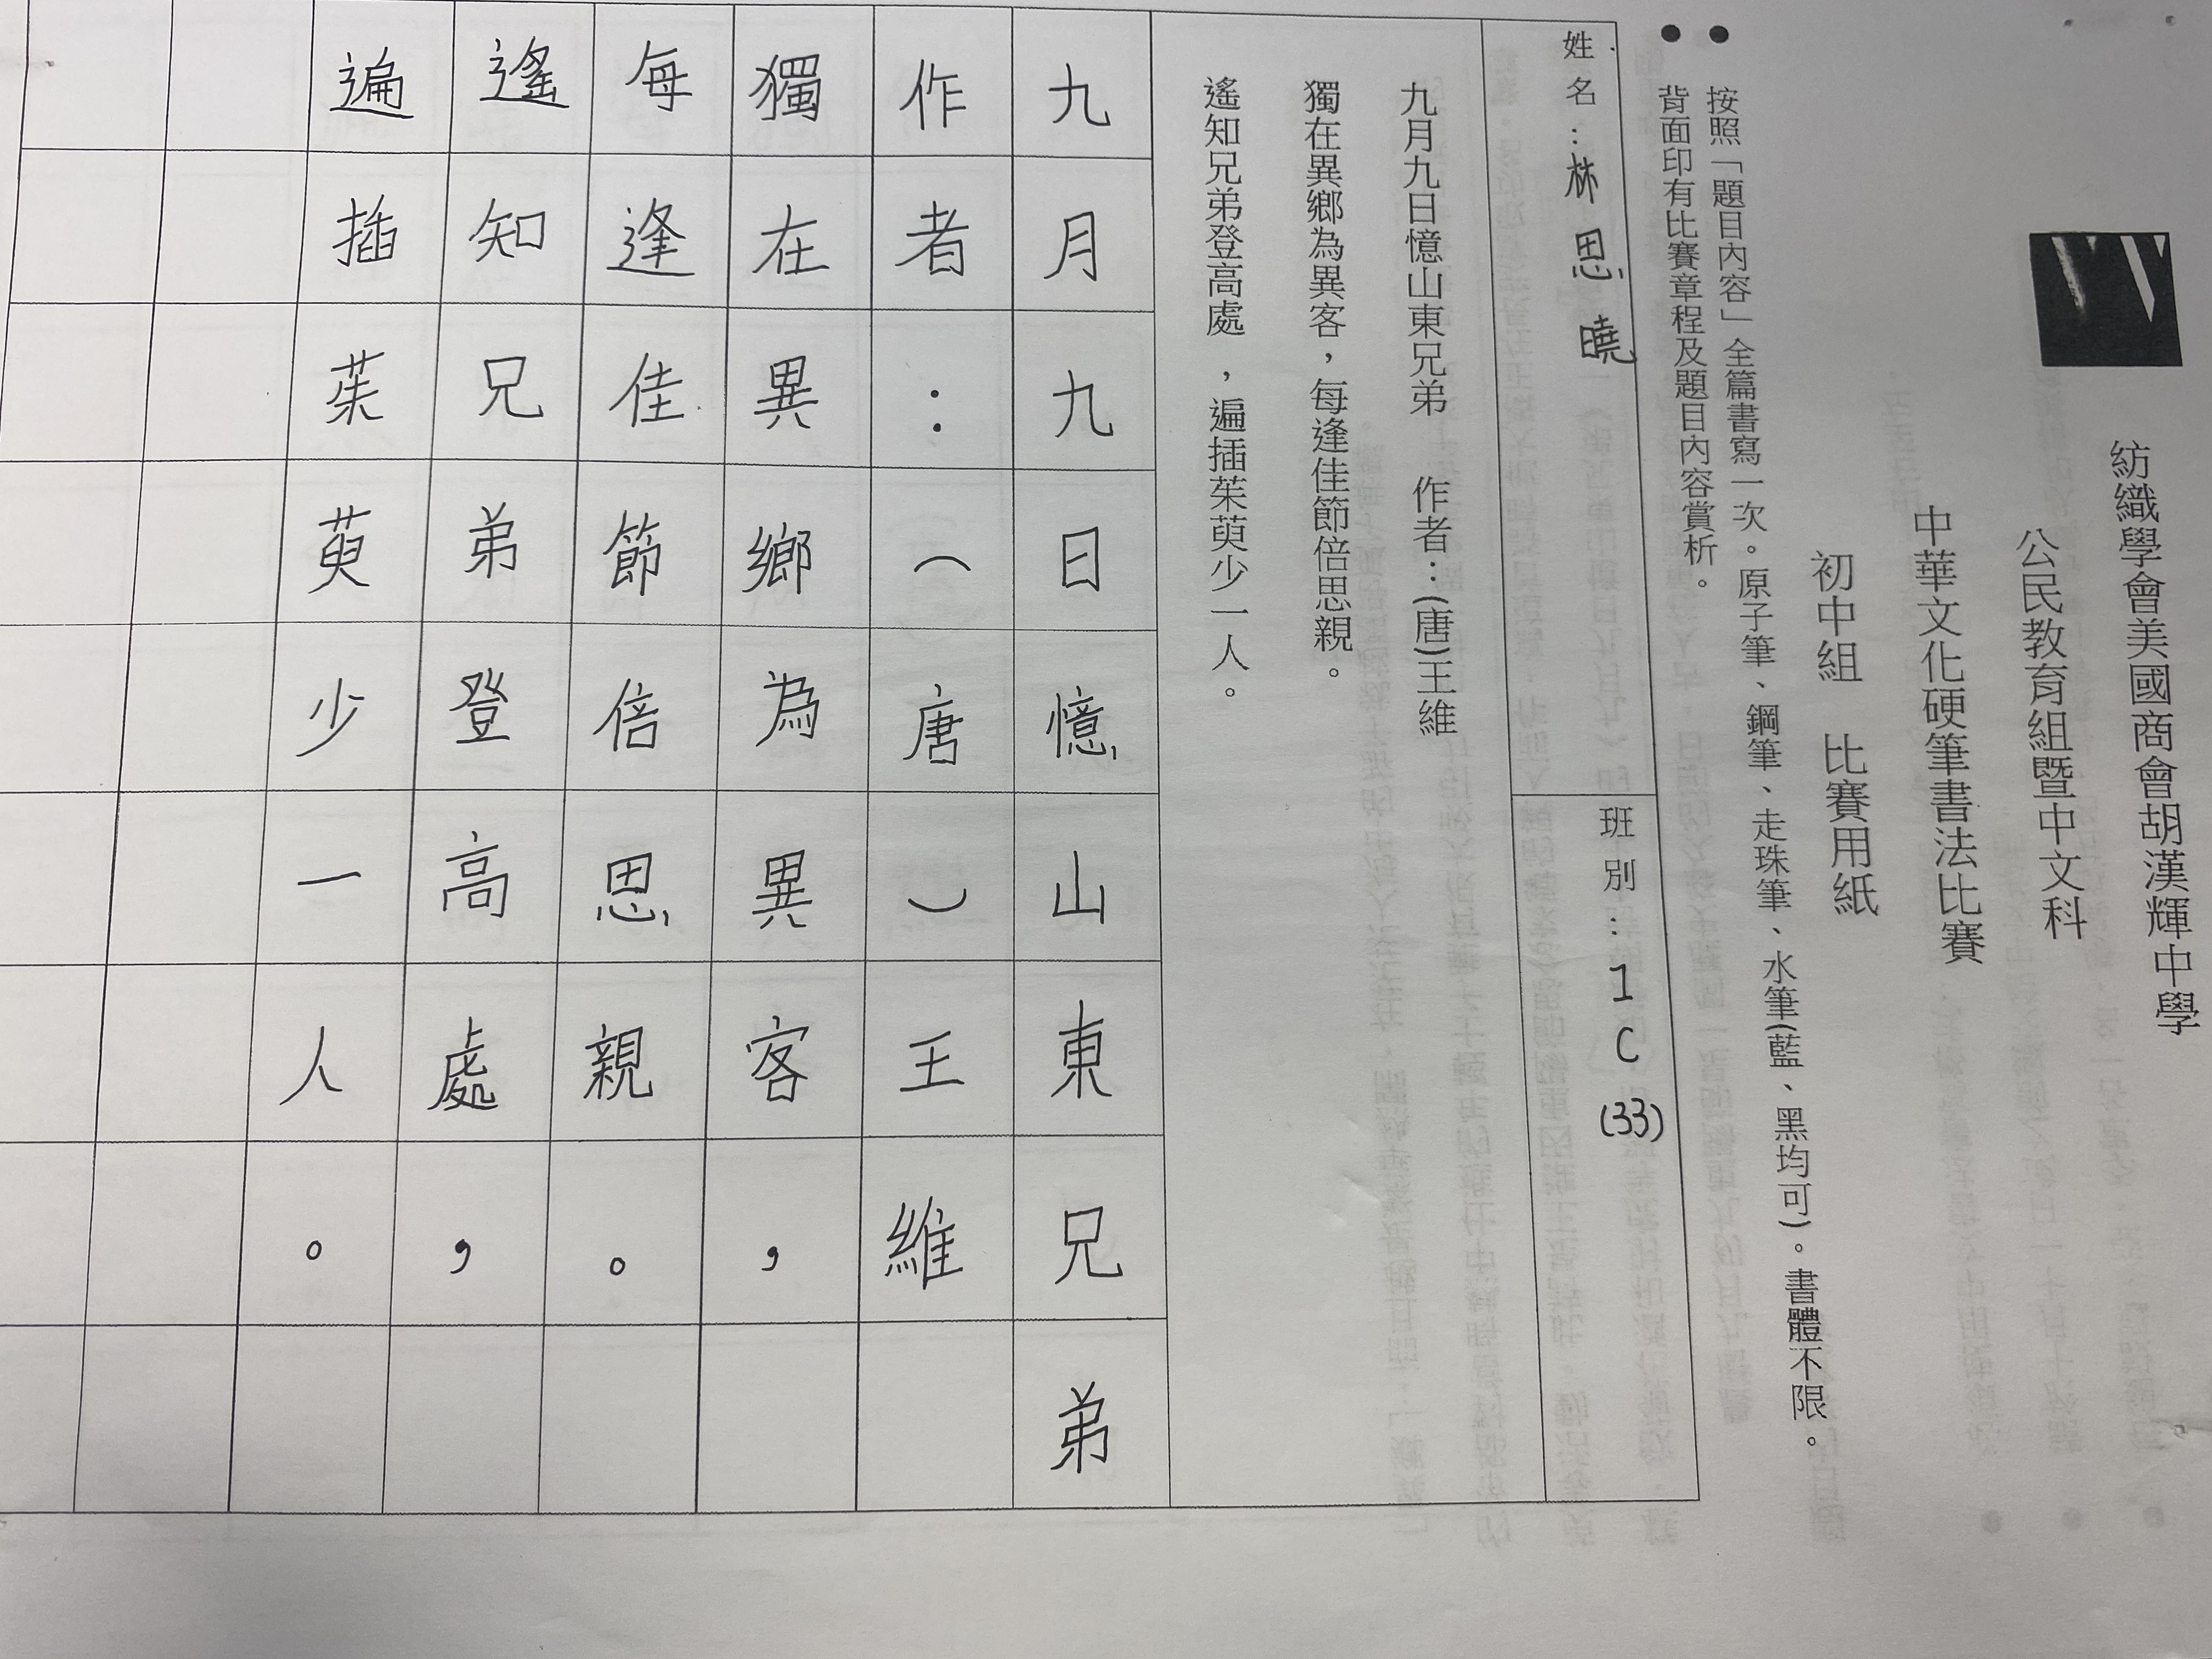 紡織學會美國商會胡漢輝中學
公民教育組暨中文科
中華文化硬筆書法比賽
初中組　比賽用紙
● 按照「題目內容」全篇書寫一次。原子筆、鋼筆、走珠筆、水筆(藍、黑均可)。書體不限。
● 背面印有比賽章程及題目內容賞析。
姓名：林思曉
班別：1C(33)
九月九日憶山東兄弟　作者：(唐)王維
獨在異鄉為異客，每逢佳節倍思親。
遙知兄弟登高處，遍插茱萸少一人。
九月九日憶山東兄弟
作者：（唐）王維
獨在異鄉為異客，
每逢佳節倍思親。
遙知兄弟登高處，
遍插茱萸少一人。